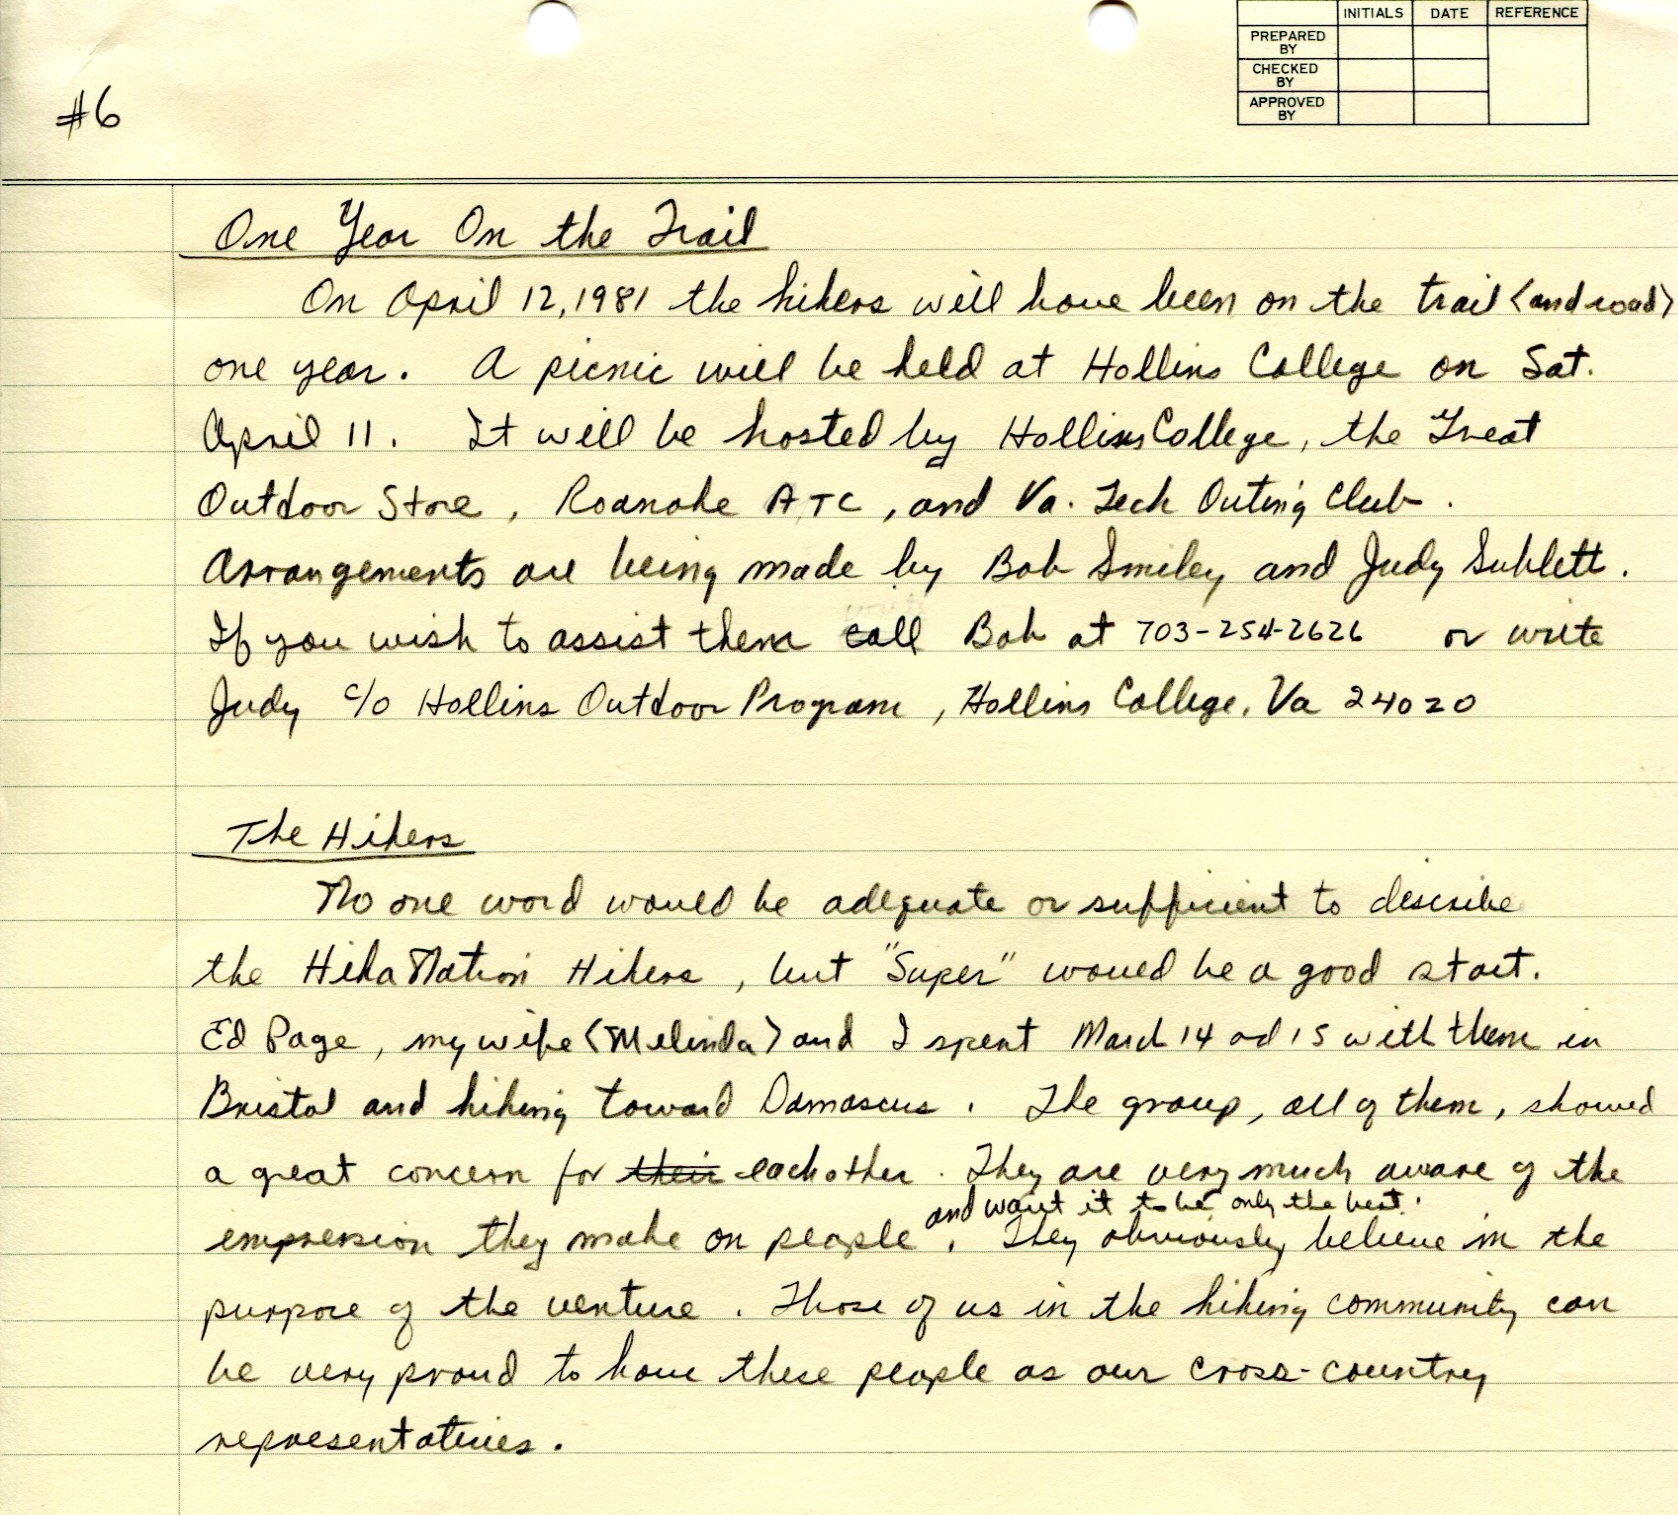 INITIALS DATE REFERENCE
PREPARED BY
CHECKED BY
APPROVED BY
#6
One Year On the Trail
On April 12, 1981 the hikers will have been on the trail <and road>
one year. A picnic will be held at Hollins College on Sat.
April 11. It will be hosted by Hollins College, the Great
Outdoor Store, Roanoke ATC, and Va. Tech Outing Club.
Arrangements are being made by Bob Smiley and Judy Sublett.
If you wish to assist them call Bob at 703-254-2626 or write
Judy c/o Hollins Outdoor Program, Hollins College, Va 24020
The Hikers
No one word would be adequate or sufficient to describe
the HikaNation Hikers, but "Super" would be a good start.
Ed Page, my wife <Melinda> and I spent March 14 ad 15 with them in
Bristol and hiking toward Damascus. The group, all of them, showed
a great concern for their eachother. They are very much aware of the
and want it to be only the best.
impression they make on people. They obviously believe in the
purpose of the venture. Those of us in the hiking community can
be very proud to have these people as our cross-country
representatives.